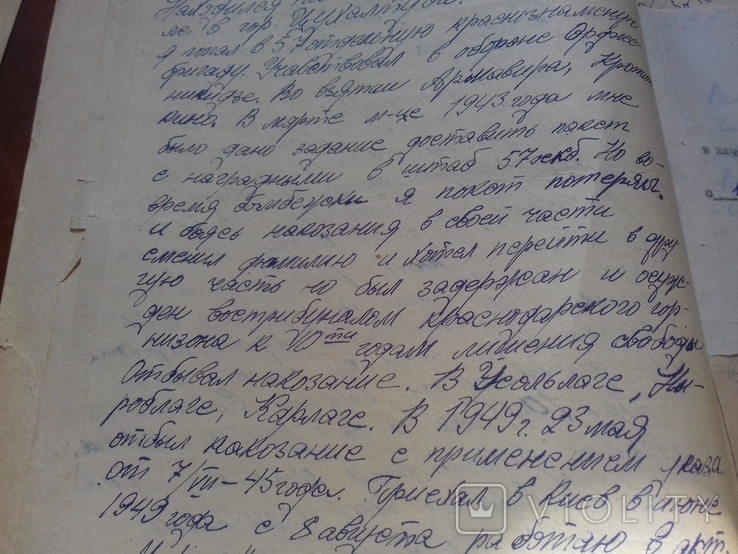 ле в гор. Цхалтубо.
я попал в 57 отдельную краснознаменную
бригаду. Учавствовал в обороне Орджо-
никидзе. Во взятии Армавира, Кропот-
кино. В марте м-це 1943 года мне
было дано задание доставить пакет
с наградными в штаб 57 оскб. Но во-
время бомбежки я пакет потерял.
И боясь накозания в своей части
сменил фамилию и хотел перейти в дру
гую часть но был задержан и осуж-
ден воетрибуналом краснодарского гор-
низона к 10ти годам лишения свободы
Отбывал накозание. В Усольлаге, Ны-
роблаге, Карлаге. В 1949 г. 23 мая
отбыл накозание с применением указа
от 7/VII-45 года. Приехал в Киев в июне
1949 года с 8 августа работаю в арт.
в нач
с
VIOLITY